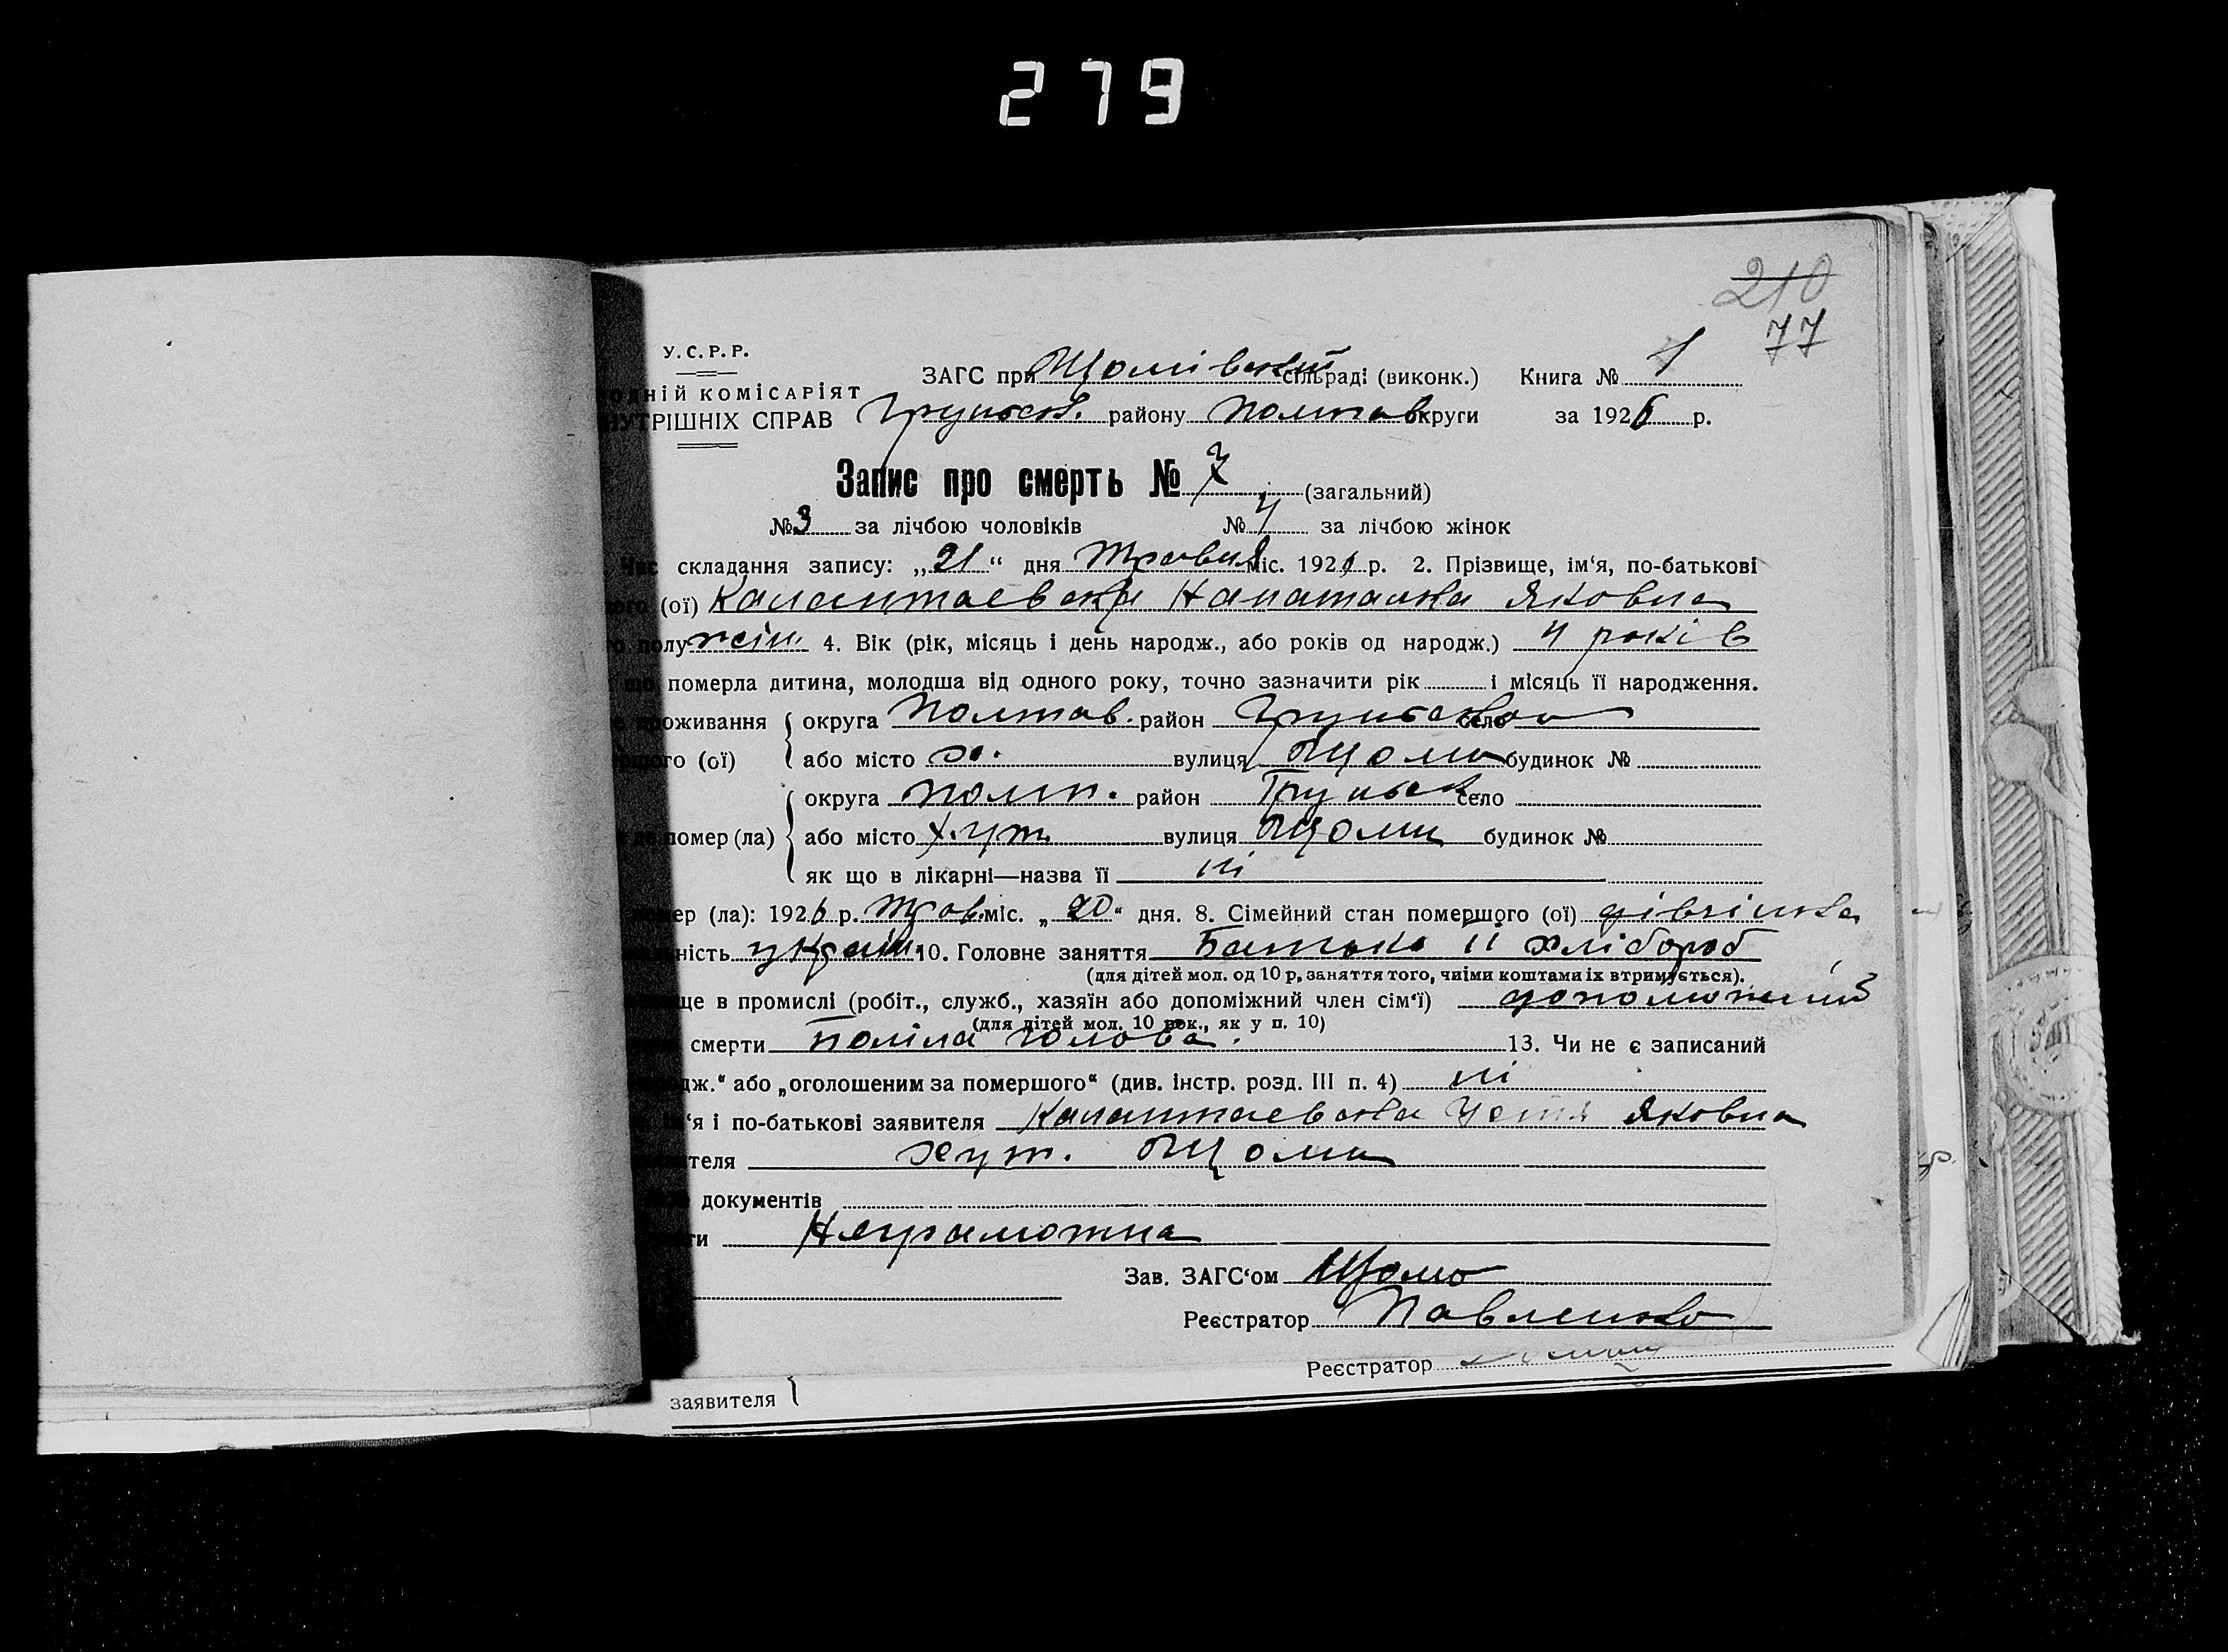 279
210
77
У.С.Р.Р.
ЗАГС при Щомівській сільраді (виконк.) Книга № 1
ОДНІЙ КОМІСАРІЯТ
НУТРІШНІХ СПРАВ Грунськ. району Полтав округи за 1926 р.
Запис про смерть № 7 (загальний)
№ 3 за лічбою чоловіків № 4 за лічбою жінок
Час складання запису: „21“ дня Травня міс. 1926 р. 2. Прізвище, ім‘я, по-батькові
ого (ої) Калантаевська Яковна
го полу жін. 4. Вік (рік, місяць і день народж., або років од народж.) 4 років
що померла дитина, молодша від одного року, точно зазначити рік і місяць її народження.
проживання округа Полтав. район Грунська село
шого (ої) або місто х. вулиця Щоми будинок №
округа Полт. район Грунськ село
де помер (ла) або місто хут. вулиця Щоми будинок №
як що в лікарні—назва її ні
омер (ла): 1926 р. Трав. міс. „20“ дня. 8. Сімейний стан помершого (ої) дівчинка
ність україн. 10. Головне заняття Батько її хлібороб
(для дітей мол. од 10 р, заняття того, чиїми коштами їх втримується).
ще в промислі (робіт., служб., хазяїн або допоміжний член сім‘ї) допоможний
(для дітей мол. 10 рок., як у п. 10)
смерти поліла голова. 13. Чи не є записаний
одж.“ або „оголошеним за помершого“ (див. інстр. розд. III п. 4) ні
ім‘я і по-батькові заявителя Калантаевська Устя Яковна
теля Хут. Щоми
документів
ти Неграмотна
Зав. ЗАГС‘ом Щома
Реєстратор Павленко
Реєстратор
заявителя